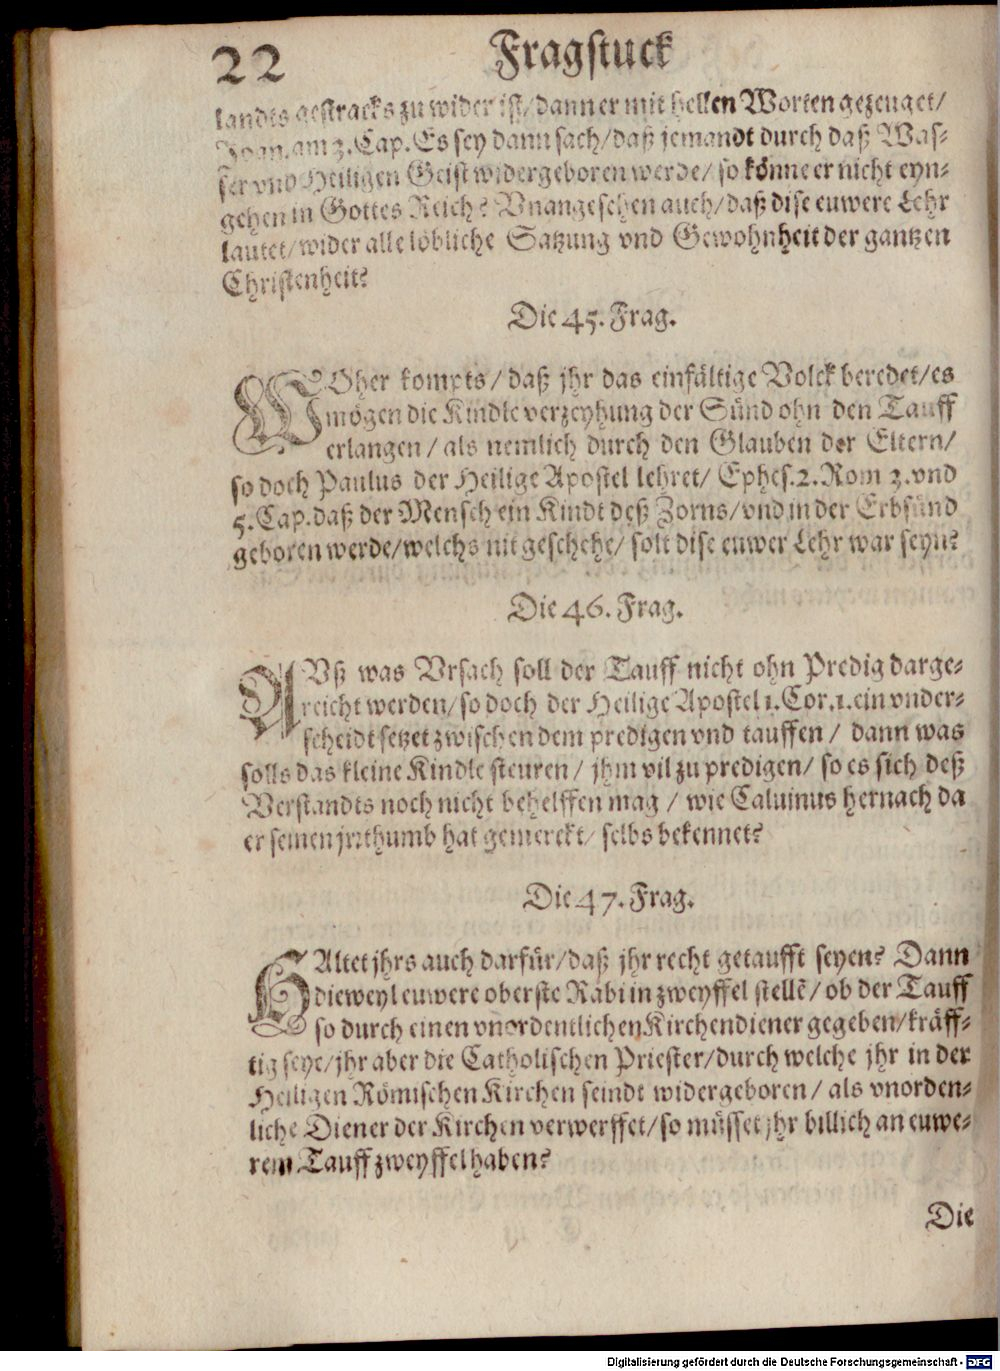 22 Fragstuck
landts gestracks zu wider ist/ dann er mit hellen Worten gezeuget/
Joan. am 3. Cap. Es sey dann sach/ daß jemandt durch daß Was-
ser vnd Heiligen Geist widergeboren werde/ so könne er nicht eyn-
gehen in Gottes Reich? Vnangesehen auch/ daß dise euwere Lehr
lautet/ wider alle löbliche Satzung vnd Gewohnheit der gantzen
Christenheit?
Die 45. Frag.
WOher kompts/ daß jhr das einfältige Volck beredet/ es
mögen die Kindle verzeyhung der Sünd ohn den Tauff
erlangen/ als nemlich durch den Glauben der Eltern/
so doch Paulus der Heilige Apostel lehret/ Ephes. 2. Rom 3. vnd
5. Cap. daß der Mensch ein Kindt deß Zorns/ vnd in der Erbsünd
geboren werde/ welchs nit geschehe/ solt dise euwer Lehr war seyn?
Die 46. Frag.
AVß was Vrsach soll der Tauff nicht ohn Predig darge-
reicht werden/ so doch der Heilige Apostel 1. Cor. 1. ein vnder-
scheidt setzet zwischen dem predigen vnd tauffen/ dann was
solls das kleine Kindle steuren/ jhm vil zu predigen/ so es sich deß
Verstandts noch nicht behelffen mag/ wie Caluinus hernach da
er seinen jrrthumb hat gemerckt/ selbs bekennet?
Die 47. Frag.
HAltet jhrs auch darfür/ daß jhr recht getaufft seyen? Dann
dieweyl euwere oberste Rabi in zweyffel stellē/ ob der Tauff
so durch einen vnordentlichen Kirchendiener gegeben/ kräff-
tig seye/ jhr aber die Catholischen Priester/ durch welche jhr in der
Heiligen Römischen Kirchen seindt widergeboren/ als vnorden-
liche Diener der Kirchen verwerffet/ so müsset jhr billich an euwe-
rem Tauff zweyffel haben?
Die
Digitalisierung gefördert durch die Deutsche Forschungsgemeinschaft - DFG